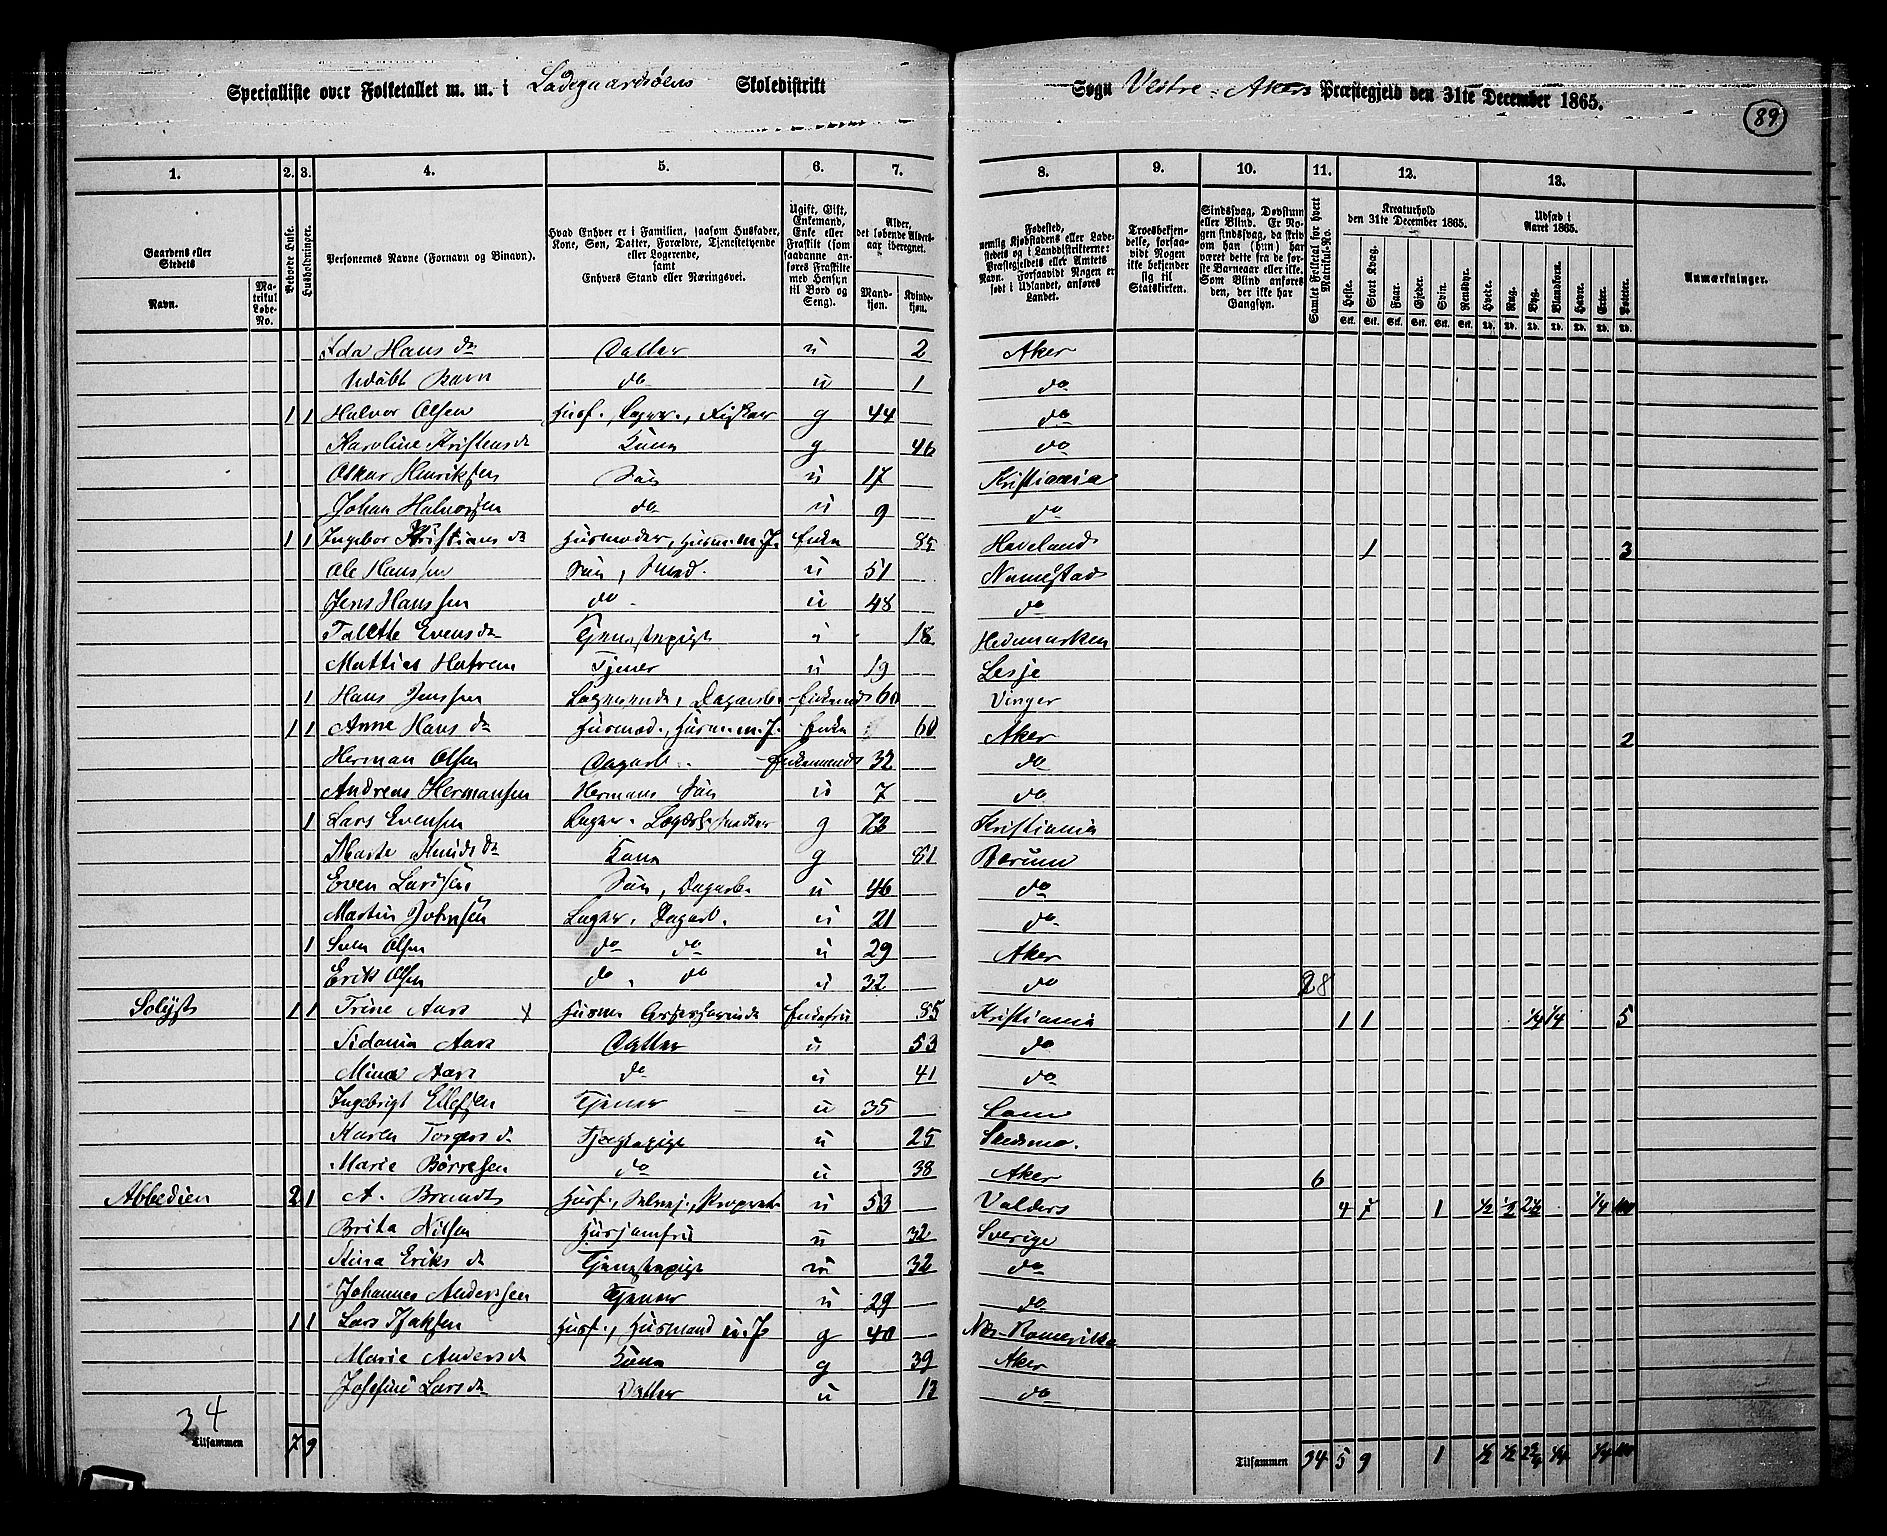 Specialliste over Folketallet m. m. i Ladegaardsøens Skoledistrikt
Sogn Vestre Akers Præstegjeld den 31te December 1865.
89
1. 2. 3. 4. 5. 6. 7. 8. 9. 10. 11. 12. 13.
Gaardens eller Stedets
Navn.
Matrikul Løbe-No.
Beboede Huse.
Husholdninger.
Personernes Navne (Fornavn og Binavn).
Hvad Enhver er i Familien, saasom Husfader, Kone, Søn, Datter, Forældre, Tjenestetyende eller Logerende, samt Enhvers Stand eller Næringsvei.
Ugift, Gift, Enkemand, Enke eller Fraskilt (som saadanne anføres Fraskilte med Hensyn til Bord og Seng).
Alder, det løbende Aldersaar iberegnet.
Mandkjøn. Kvindekjøn.
Fødested, nemlig Kjøbstadens eller Ladestedets og i Landdistrikterne: Præstegjeldets eller Amtets Navn. Forsaavidt Nogen er født i Udlandet, anføres Landet.
Troesbekjendelse, forsaavidt Nogen ikke bekjender sig til Statskirken.
Sindssvag, Døvstum eller Blind. Er Nogen sindssvag, da skrives om han (hun) har været dette fra de første Barneaar eller ikke. Som Blind anføres den, der ikke har Gangsyn.
Samlet Folketal for hvert Matrikul-No.
Kreaturhold den 31te December 1865.
Heste. Stort Kvæg. Faar. Gjeder. Svin. Rensdyr.
Udsæd i Aaret 1865.
Hvede. Rug. Byg. Blandkorn. Havre. Erter. Poteter.
Anmærkninger.
Ida Hans dr Datter u 2 Aker
Udøbt Barn do u 1 do
1 1 Halvor Olsen Husf., Loger., Fisker g 44 do
Karoline Kristens dr Kone g 46 do
Oskar Henriksen Søn u 17 Kristiania
Johan Halvorsen do u 9 do
1 1 Ingebor Kristians dr Husmoder, Husm. m. J. Enke 85 Hadeland 1 3
Ole Hanssen Søn, Smed. u 51 Nannestad
Jens Hanssen do u 48 do
Talette Evens dr Tjenestepige u 18 Hedemarken
Mattias Tjener u 19 Lesje
1 Hans Jenssen Logerende, Dagarb. Enkemand 60 Vinger
1 1 Anne Hans dr Husmod., Husm. m. J. Enke 60 Aker 2
Herman Olsen Dagarb. Enkemand 32 do
Andreas Hermansen Hermans Søn u 7 do
1 Lars Evensen Loger. g 73 Kristiania
Marte Knuds dr Kone g 81 Bærum
Even Larssen Søn, Dagarb. u 46 do
Martin Johnsen Loger. Dagarb. u 21 do
1 Sven Olsen do do u 29 Aker
Erik Olsen do do u 32 do 28
Solyst 1 1 Trine Aars Enkefru 85 Kristiania 1 1 1/4 1/4 5
Sidonia Aars Datter u 53 do
Mina Aars do u 41 do
Ingebrigt Ellefsen Tjener u 35 Lom
Karen Torgers dr Tjenestepige u 25 Skedsmo.
Marie Børresen do u 38 Aker 6
Abbedien 2 1 A. Brandt Husf., Selvej., Proprietær u 53 Valders 4 7 1 1/2 1/2 2 1/2 1/4 100
Brita Nilsen Husjomfru u 32 Sverige
Nina Eriks dr Tjenestepige u 32 do
Johannes Anderssen Tjener u 29 do
1 1 Lars Isaksen Husf., Husmand u. J. g 40 Nes-Romerike
Marie Anders dr Kone g 39 Aker
Josefine Lars dr Datter u 12 do
34
Tilsammen 7 9
Tilsammen 34 5 9 1 1/2 1/2 2 3/4 1/4 1/4 110